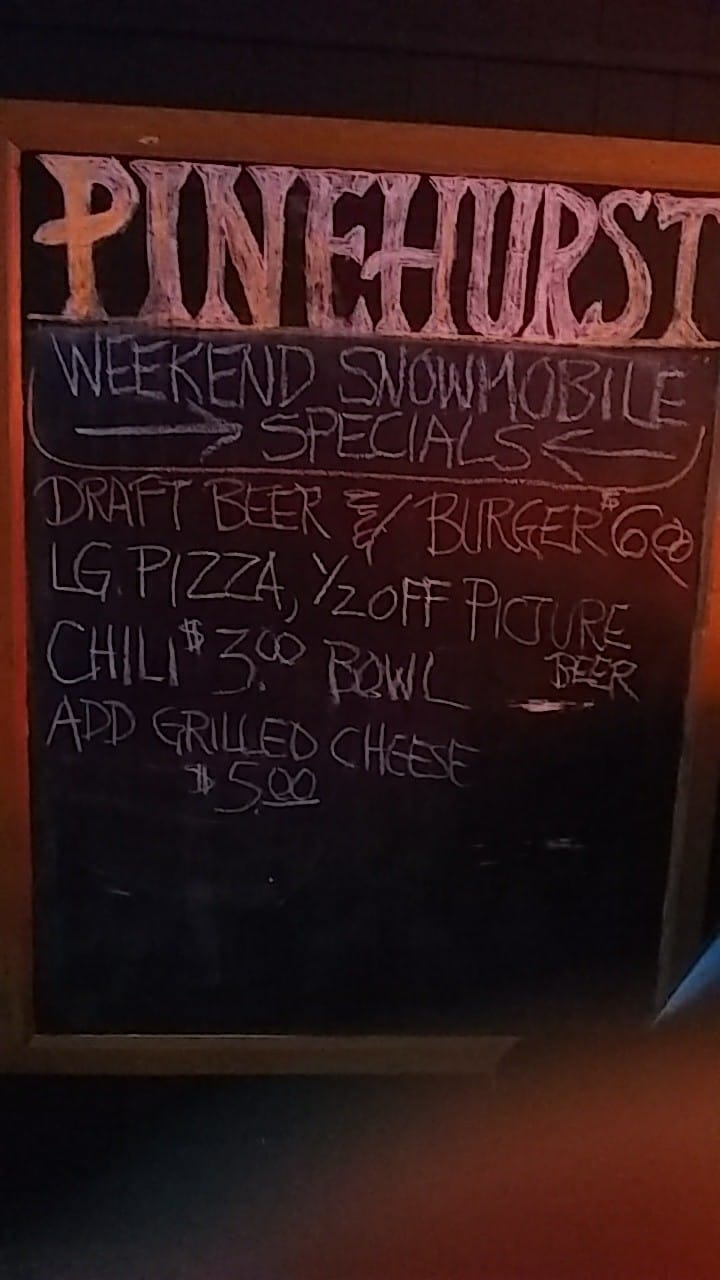 PINEHURST
WEEKEND SNOWMOBILE
SPECIALS
DRAFT BEER & BURGER $6.00
LG. PIZZA, 1/2 OFF PICTURE
BEER
CHILI $3.00 BOWL
ADD GRILLED CHEESE
$5.00